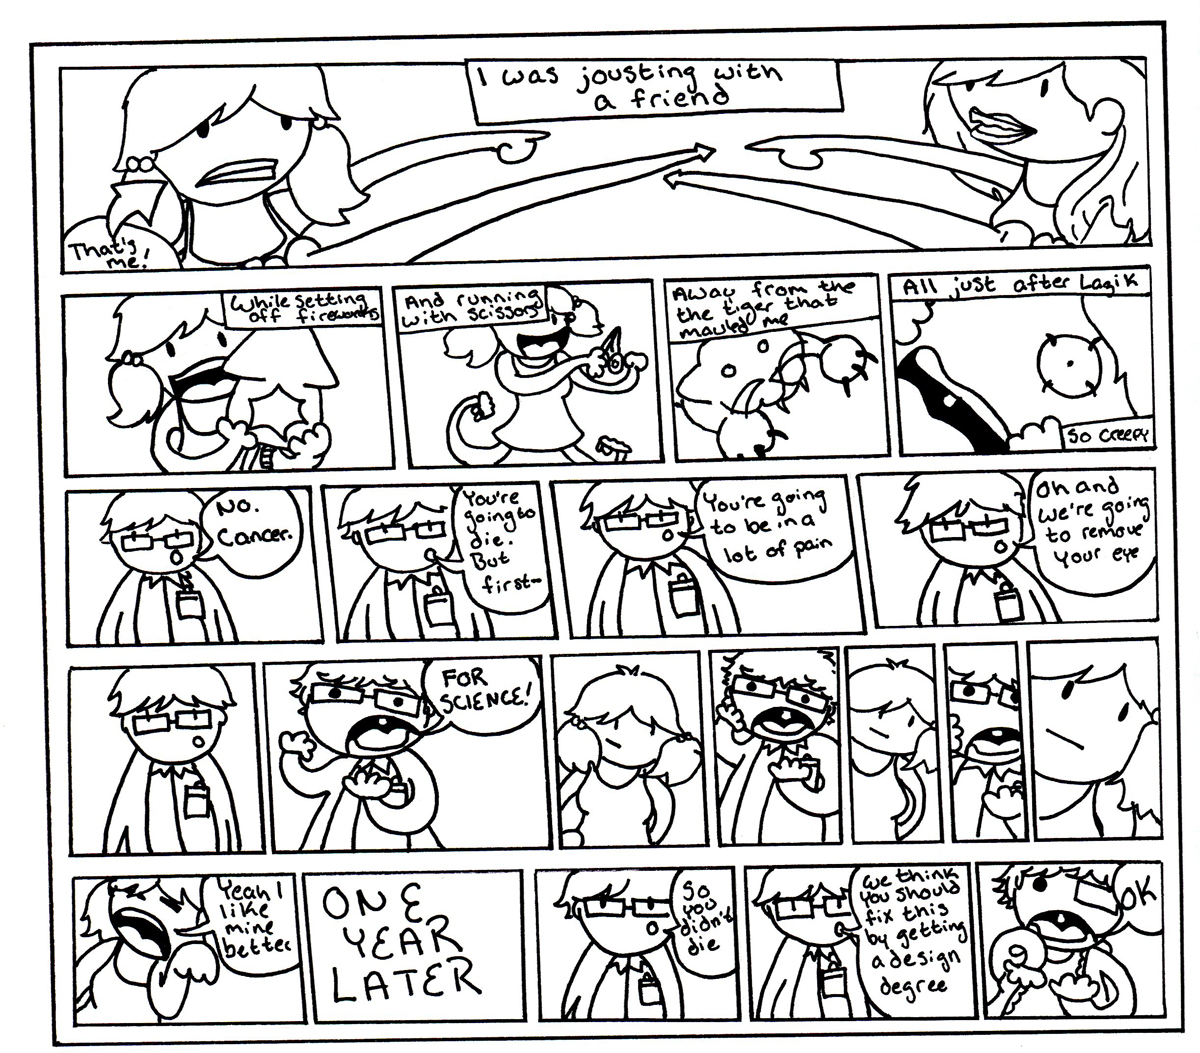 I was jousting with
a friend
That's
me!
While setting
off fireworks
And running
with scissors
Away from the
the tiger that
mauled me
All just after Lazik
So creepy
No.
Cancer.
You're
going to
die.
But
first-
You're going
to be in a
lot of pain
Oh and
we're going
to remove
your eye
FOR
SCIENCE!
Yeah I
like
mine
better
ONE
YEAR
LATER
So
you
didn't
die
we think
you should
fix this
by getting
a design
degree
OK